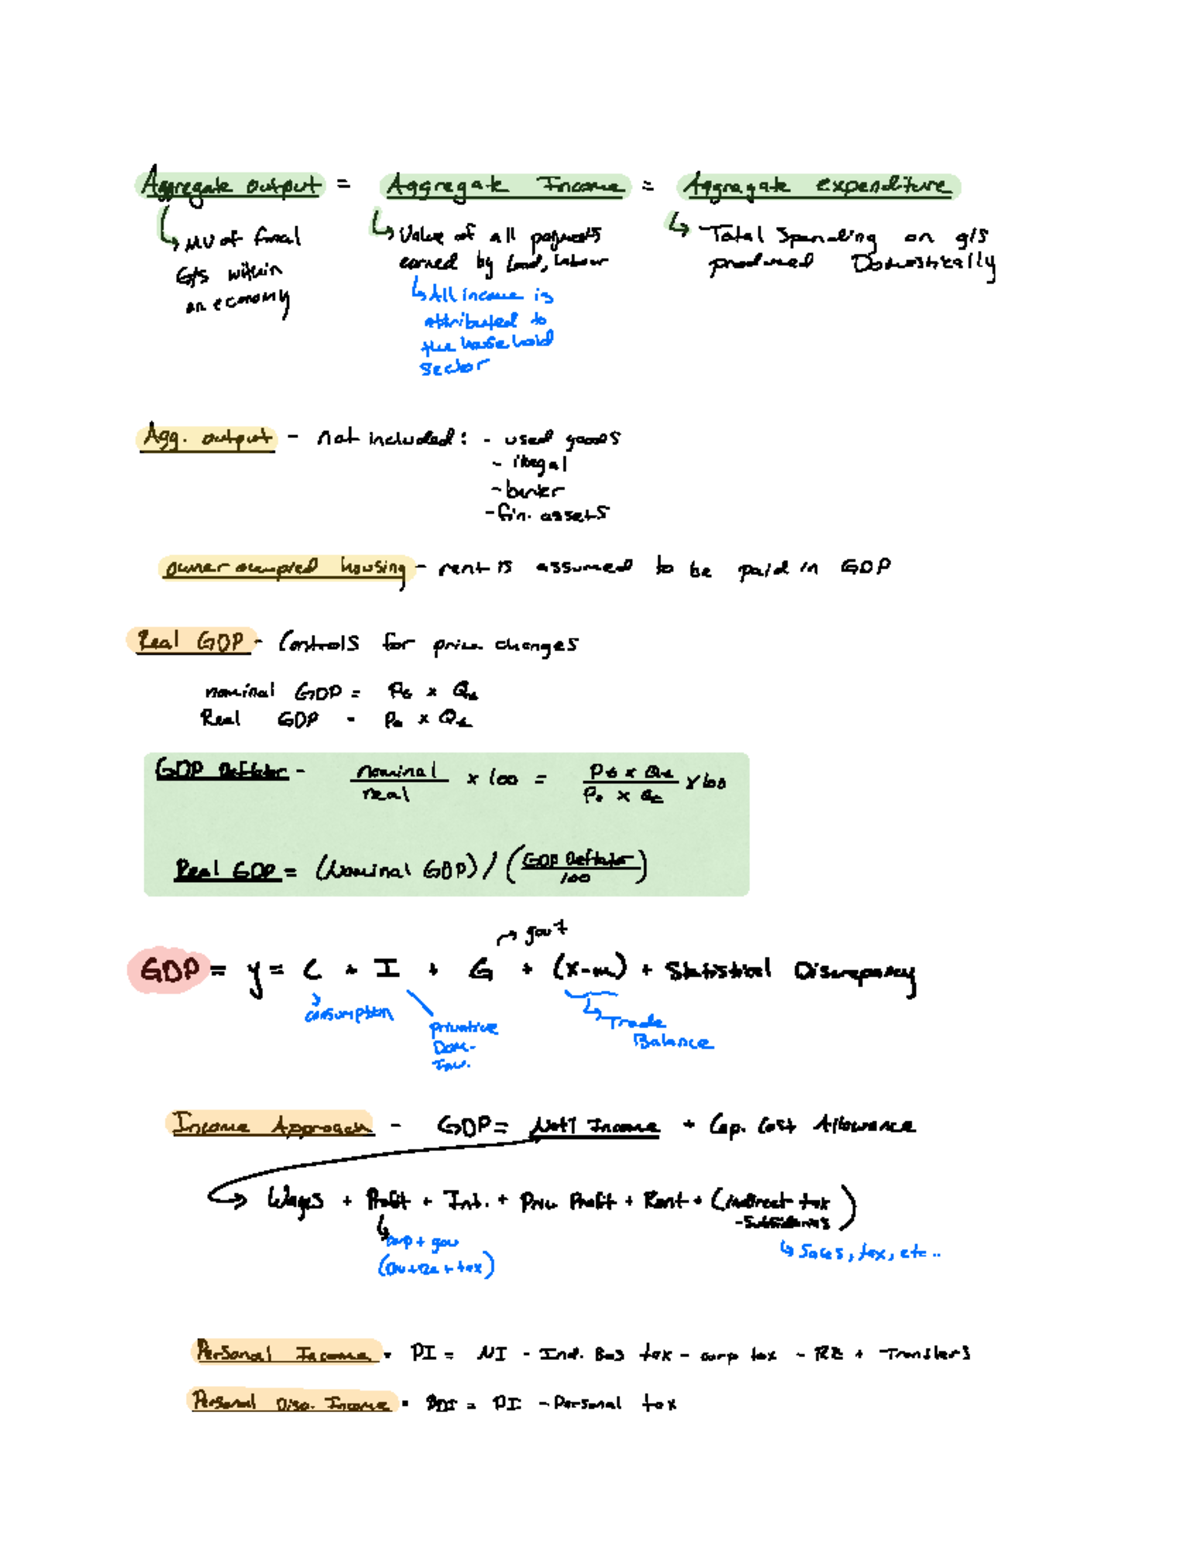 Aggregate output = Aggregate Income = Aggregate expenditure
↳ MV of final
G/s within
an economy
↳ Value of all payments
earned by land, labour
↳ All income is
attributed to
the household
sector
↳ Total Spending on g/s
produced Domestically
Agg. output - not included: - used goods
- illegal
- barter
- fin. assets
owner occupied housing - rent is assumed to be paid in GDP
Real GDP - Controls for price changes
nominal GDP =
Real GDP -
GDP Deflator - nominal / real × 100 = × 100
Real GDP = (Nominal GDP) / (GDP Deflator / 100)
→ gov't
GDP = y = C + I + G + (X-m) + Statistical Discrepancy
consumption
Dom.
Inv.
↳ Trade
Balance
Income Approach - GDP = Nat'l Income + Cap. Cost Allowance
↳ Wages + Profit + Int. + Priv. Profit + Rent + (indirect tax
- Subsidaries)
↳ corp + gov
↳ Sales, tax, etc..
Personal Income - PI = NI - Ind. Bus tax - corp tax - RE + Transfers
Personal Disp. Income - PDI = PI - Personal tax